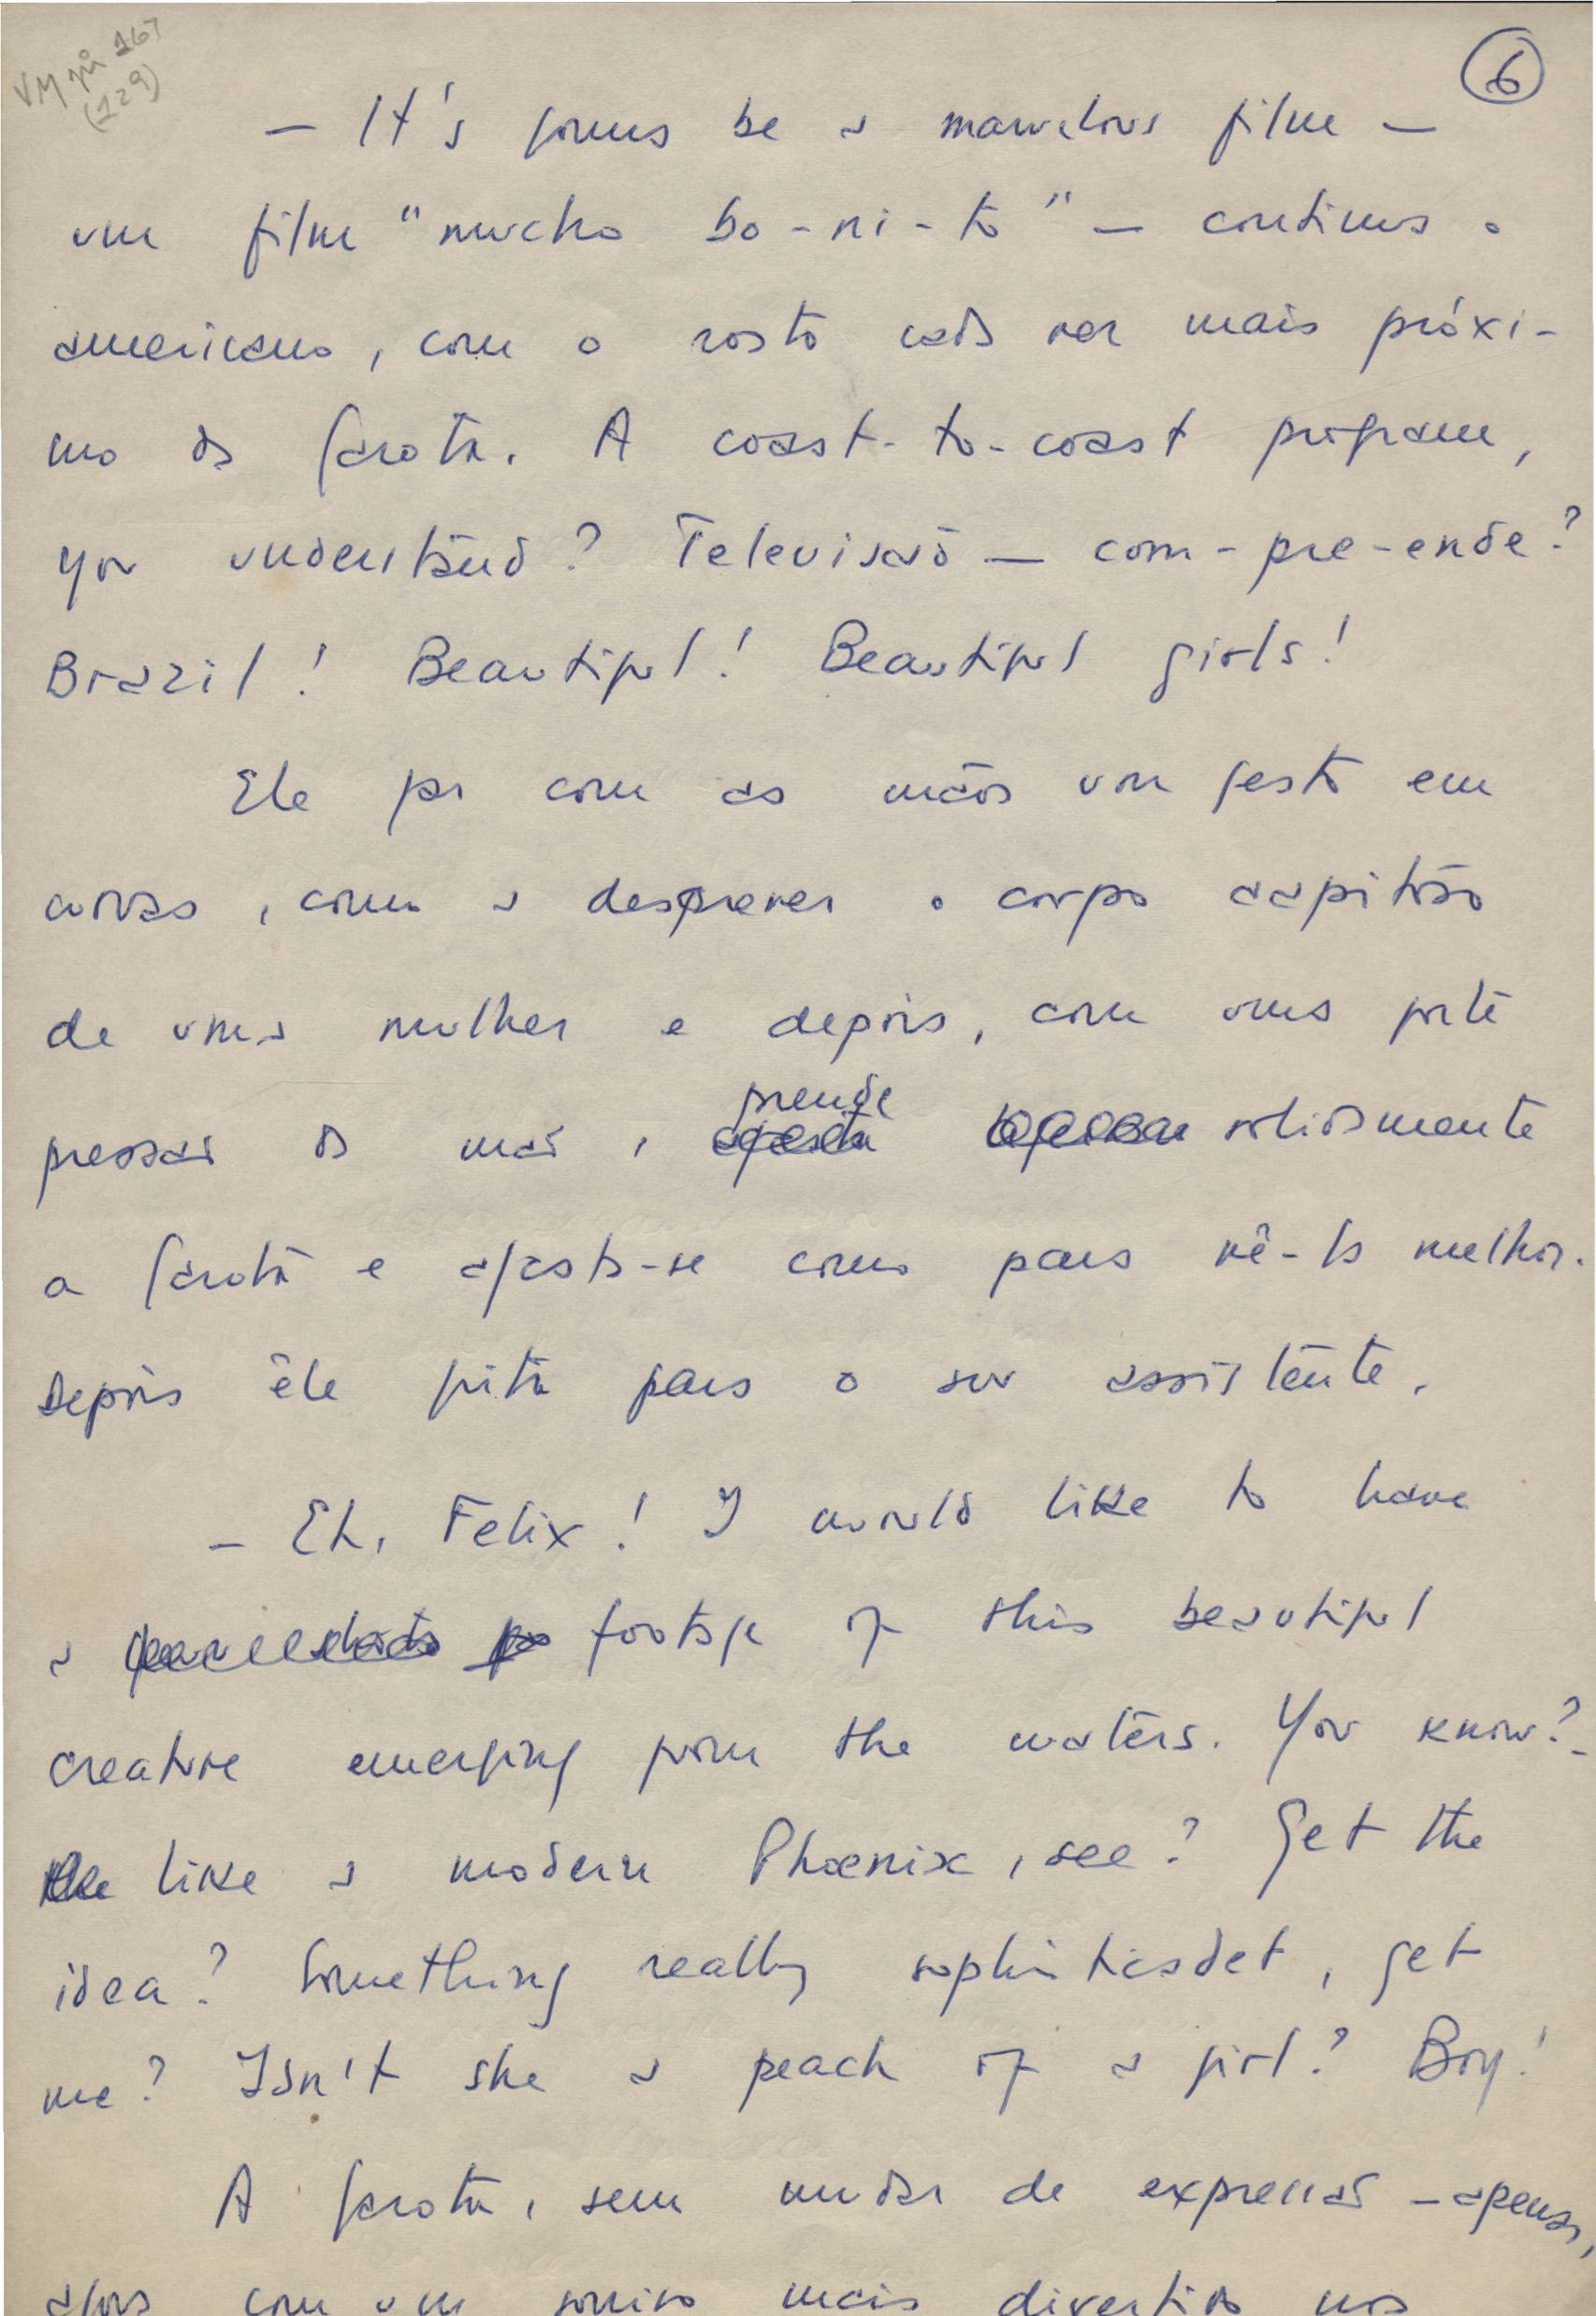 VM 167
(129)
6
— It's gonna be a marvelous film —
um film "mucho bo-ni-to" — continua o
americano, com o rosto cada vez mais próxi-
mo da Garota. A coast-to-coast program,
you understand? Televisão — com-pre-ende?
Brazil! Beautiful! Beautiful girls!
Ele faz com as mãos um gesto em
curvas, como a descrever o corpo
de uma mulher e depois, com uma forte
pressão da mão, prende solidamente
a Garota e afasta-se como para vê-la melhor.
Depois êle grita para o seu assistente.
— Eh, Felix! I would like to have
a footage of this beautiful
creature emerging from the waters. You know? —
like a modern Phœnix, see? Get the
idea? Something really sophisticadet, get
me? Isn't she a peach of a girl? Boy!
A Garota, sem mudar de expressão — apenas,
agora com um sorriso mais divertido nos